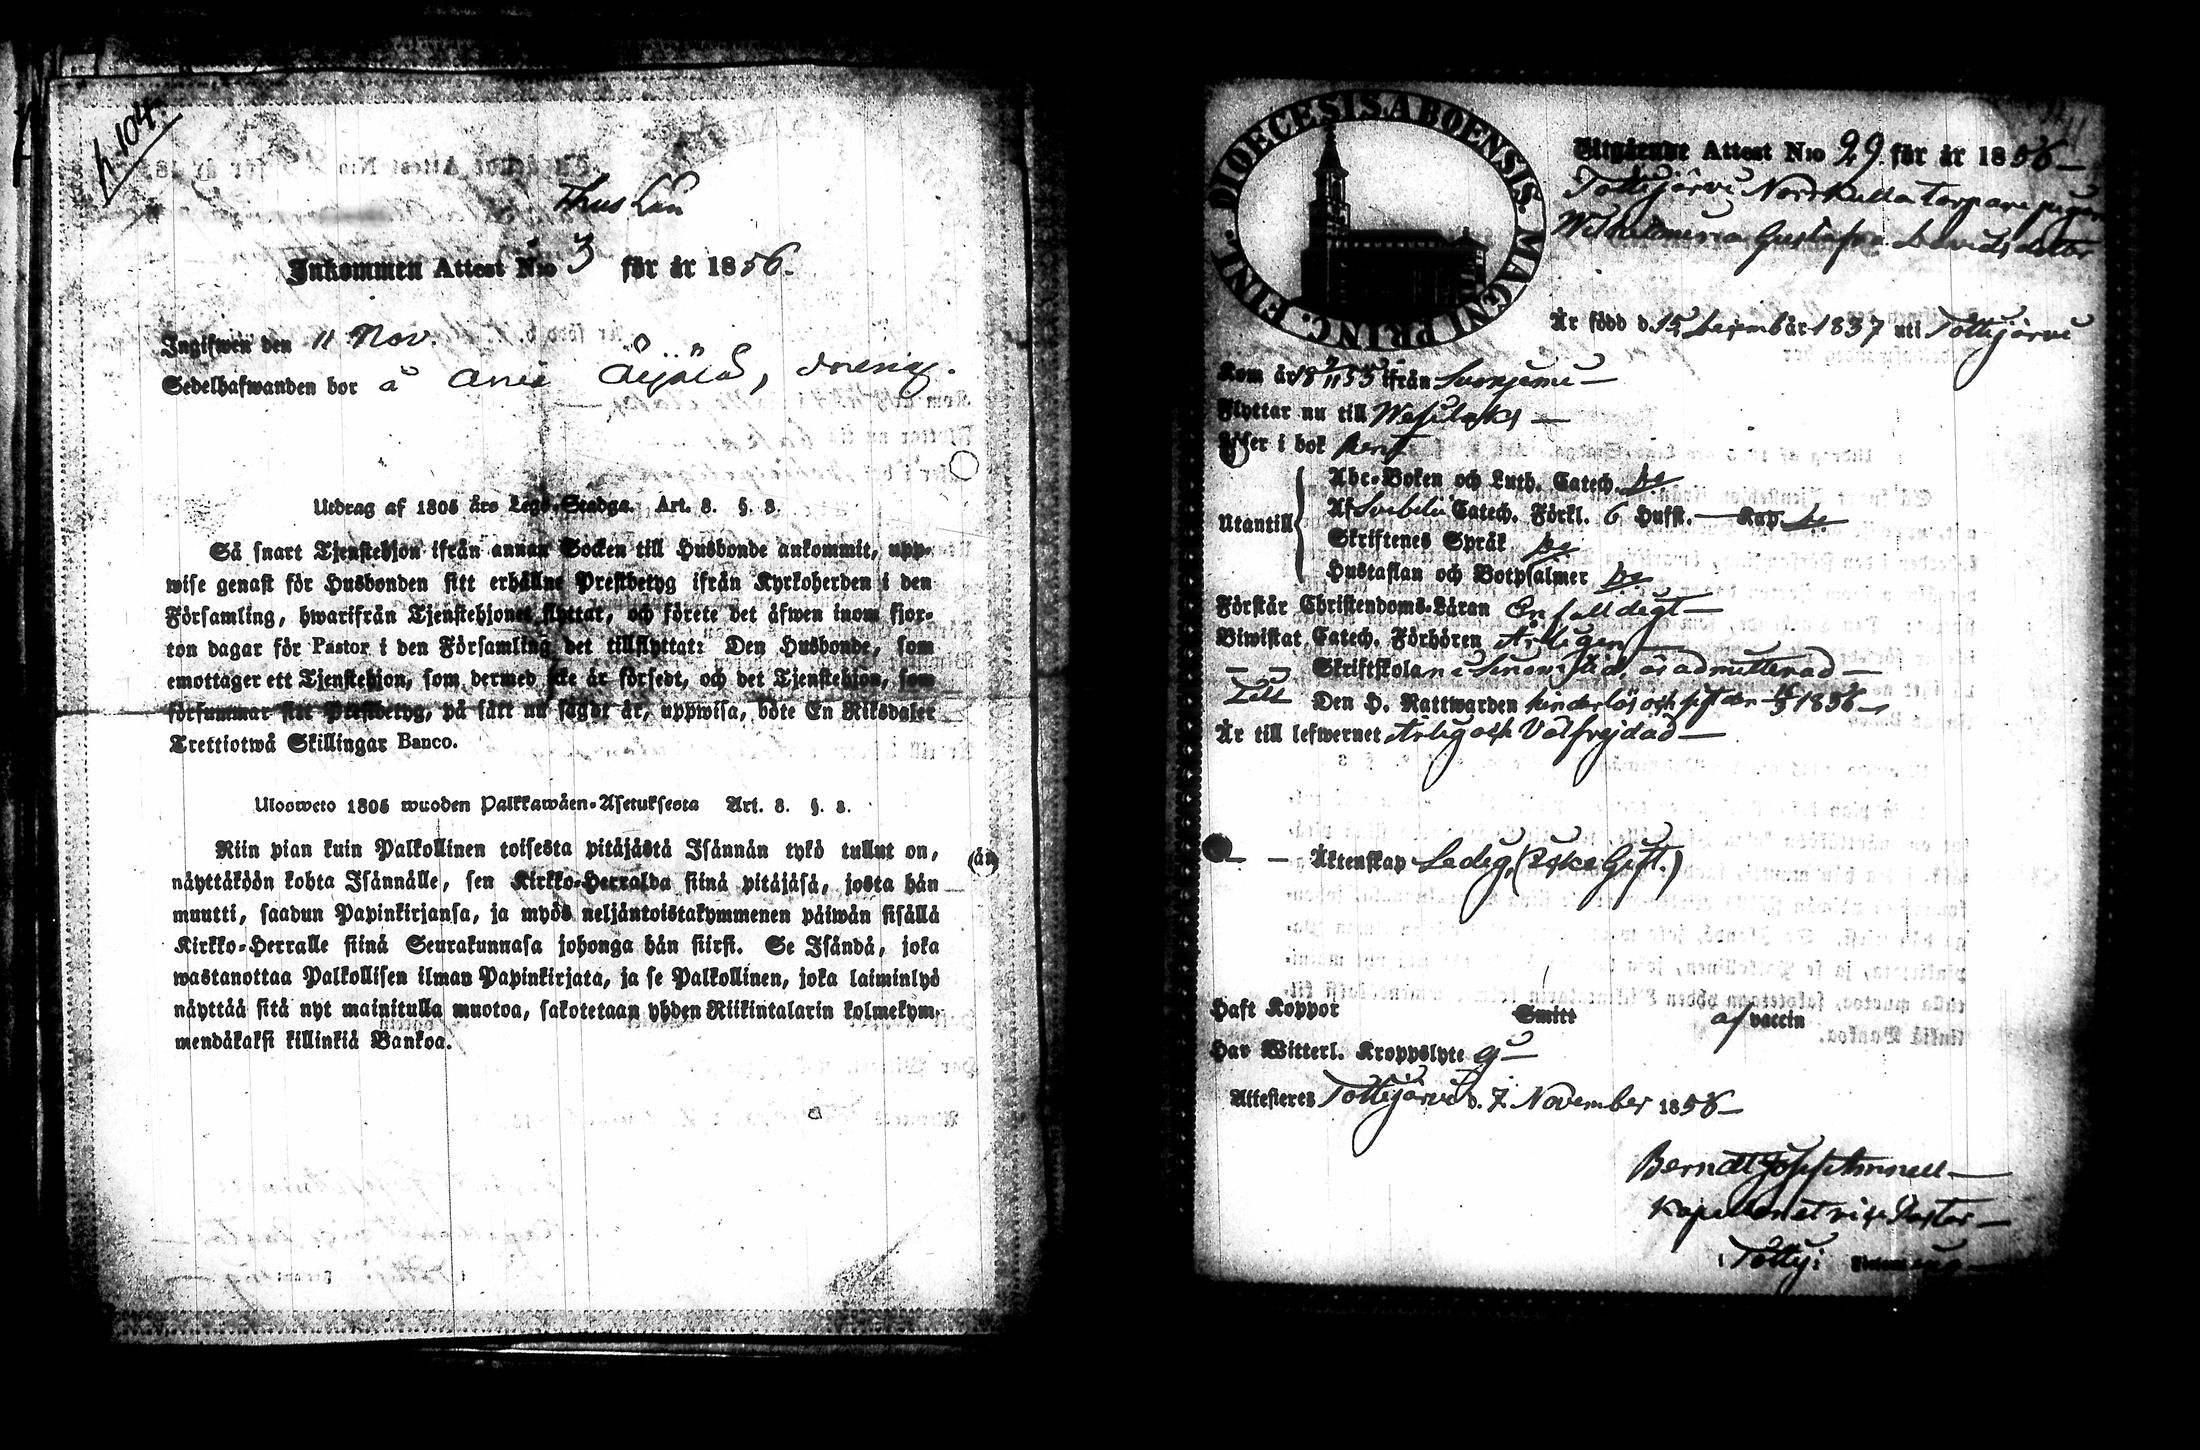 p. 104.
Inkommen Attest N:o 3 för år 1856.
Ingifwen den 11 Nov.
Sedelhafwanden bor å Äijälä, dräng.
Utdrag af 1805 års Lego-Stadga. Art. 8. §. 8.
Så snart Tjenstehjon ifrån annan Socken till Husbonde ankommit, upp-
wise genast för Husbonden sitt erhållne Prestbetyg ifrån Kyrkoherden i den
Församling, hwarifrån Tjenstehjonet flyttat, och förete det äfwen inom fjor-
ton dagar för Pastor i den Församling det tillflyttat: Den Husbonde, som
emottager ett Tjenstehjon, som dermed icke är försedt, och det Tjenstehjon, som
försummar sitt Prestbetyg, på sätt nu sagdt är, uppwisa, böte En Riksdaler
Trettiotwå Skillingar Banco.
Ulosweto 1805 wuoden Palkkawäen-Asetuksesta Art. 8. §. 8.
Niin pian kuin Palkollinen toisesta pitäjästä Isännän tykö tullut on,
näyttäköön kohta Isännälle, sen Kirkko-Herralda siinä pitäjäsä, josta hän
muutti, saadun Papinkirjansa, ja myös neljäntoistakymmenen päiwän sisällä
Kirkko-Herralle siinä Seurakunnasa johonga hän siirsi. Se Isändä, joka
wastanottaa Palkollisen ilman Papinkirjata, ja se Palkollinen, joka laiminlyö
näyttää sitä nyt mainitulla muotoa, sakotetaan yhden Riikintalarin kolmekym-
mendäkaksi killinkiä Bankoa.
DIOECESIS ABOENSIS. MAGNI PRINC. FINL.
Utgående Attest N:o 29. för år 1856
Tottijärvi Norrkulla torpare pigan
Wilhelmina Gustafva Davidsdotter
Är född d. 15 Decemb år 1837 uti Tottijärvi
Kom år 18 ifrån Suoniemi
Flyttar nu till Wesilaks
Läser i bok rent
Utantill
Abc-Boken och Luth. Catech.
Af Svebelii Catech. Förkl. 6 Hufst. Kap.
Skriftenes Språk
Hustaflan och Botpsalmer
Förstår Christendoms-Läran Enfaldigt
Biwistat Catech. Förhören Årligen
Skriftskolan är admitterad
Till Den H. Nattwarden sist den 1856
Är till lefwernet Ärlig och Välfrejdad
Äktenskap Ledig, (Icke Gift.)
Haft Koppor Smitt af vaccin
Hav Witterl. Kroppslyte ej
Attesteres Tottijärvi d. 7 November 1856
Berndt Josef
Kapellan et vice Pastor
i Tottij: